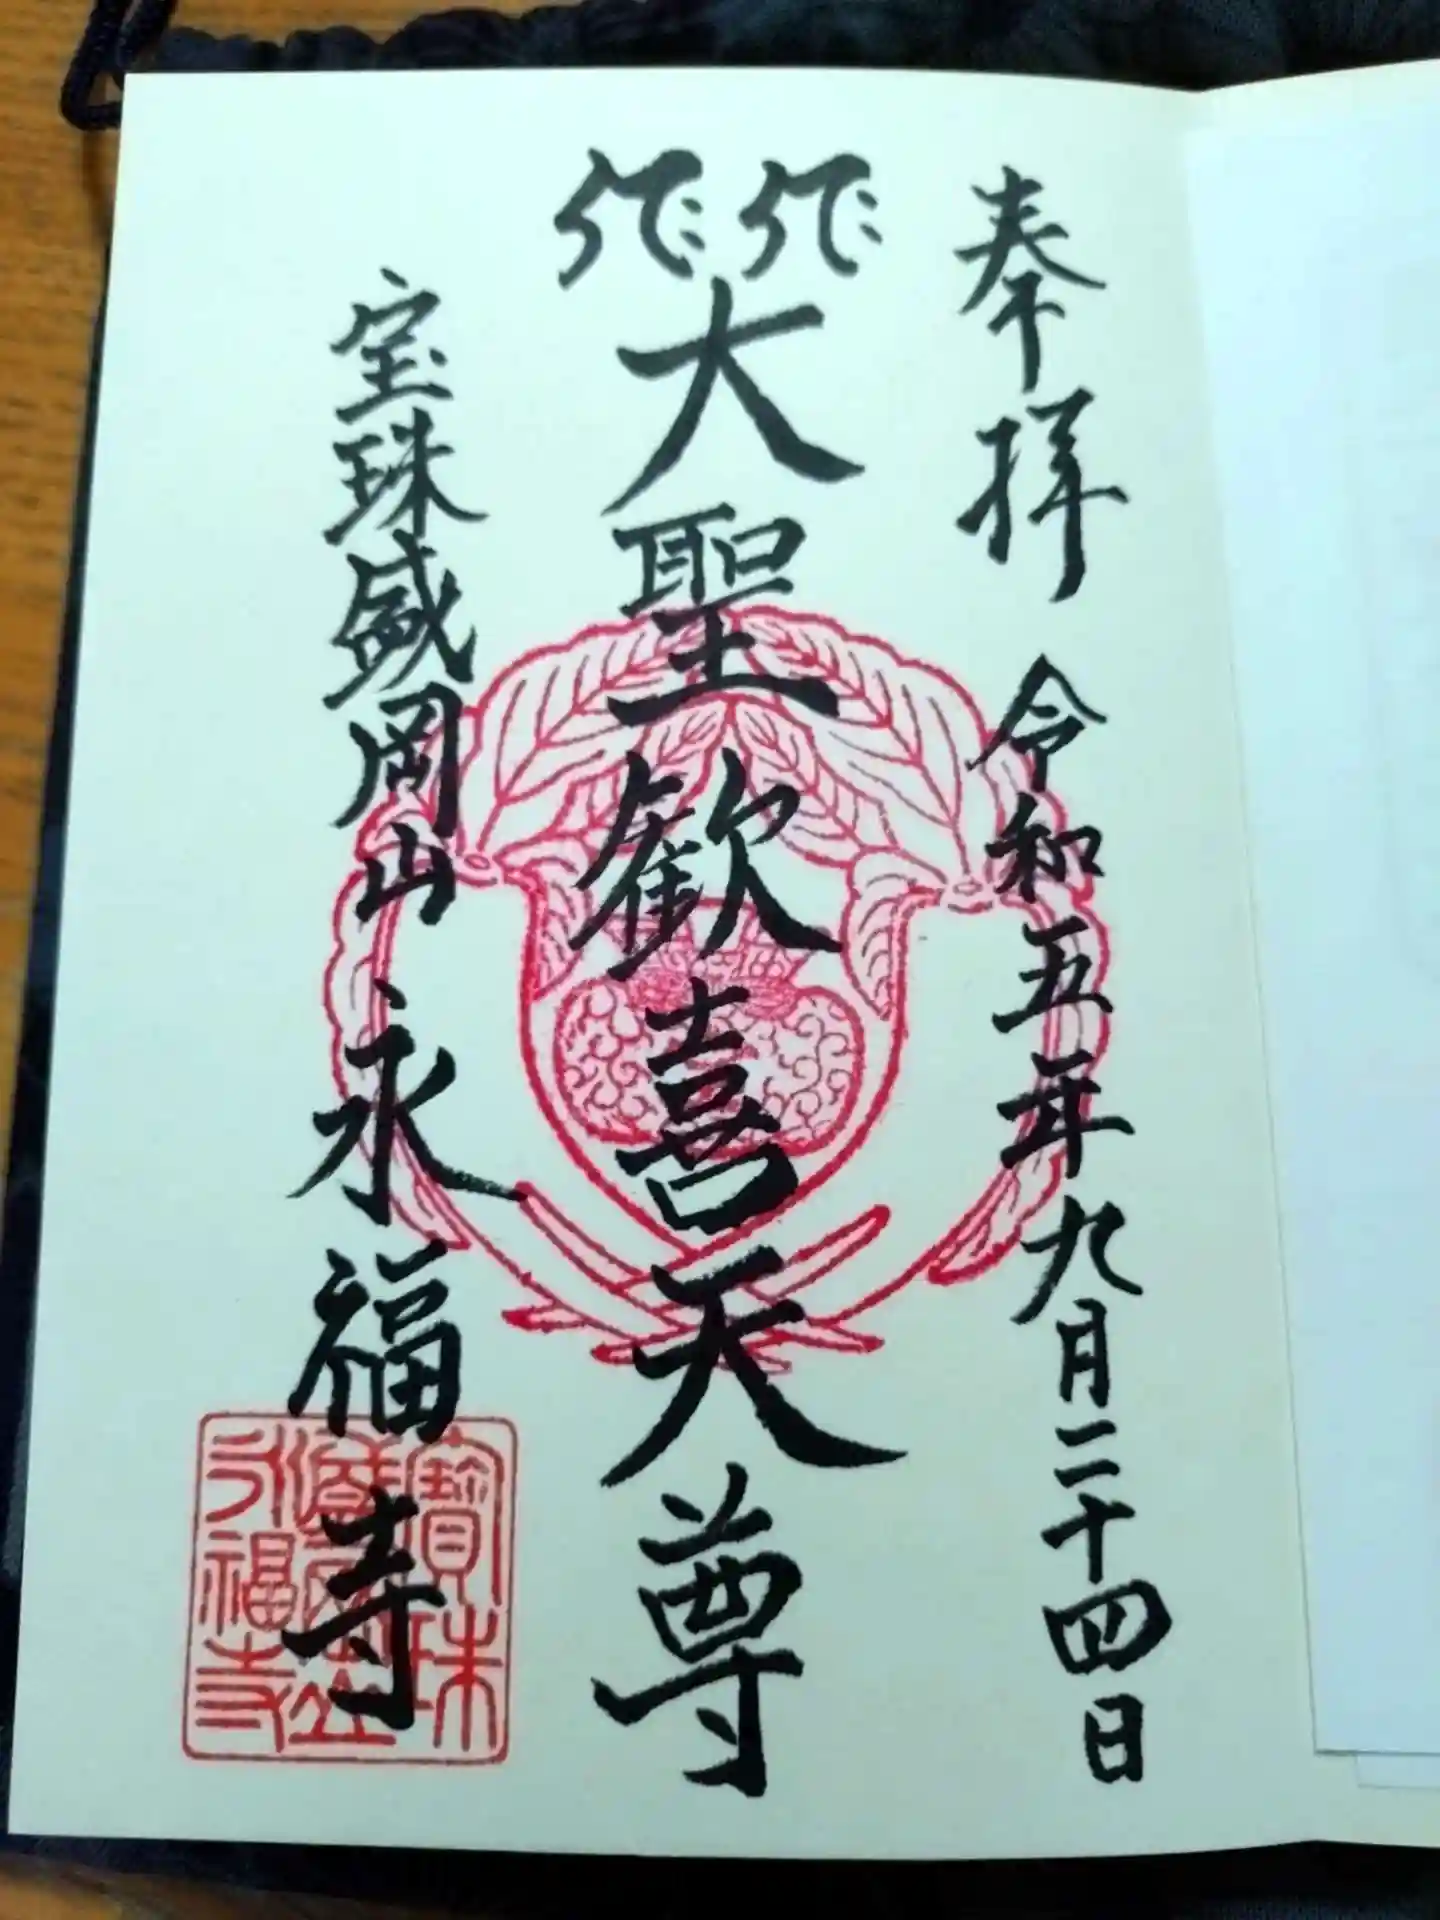 奉拝 令和五年九月二十四日
大聖歓喜天尊
宝珠盛岡山 永福寺
寶珠
盛岡山
永福寺